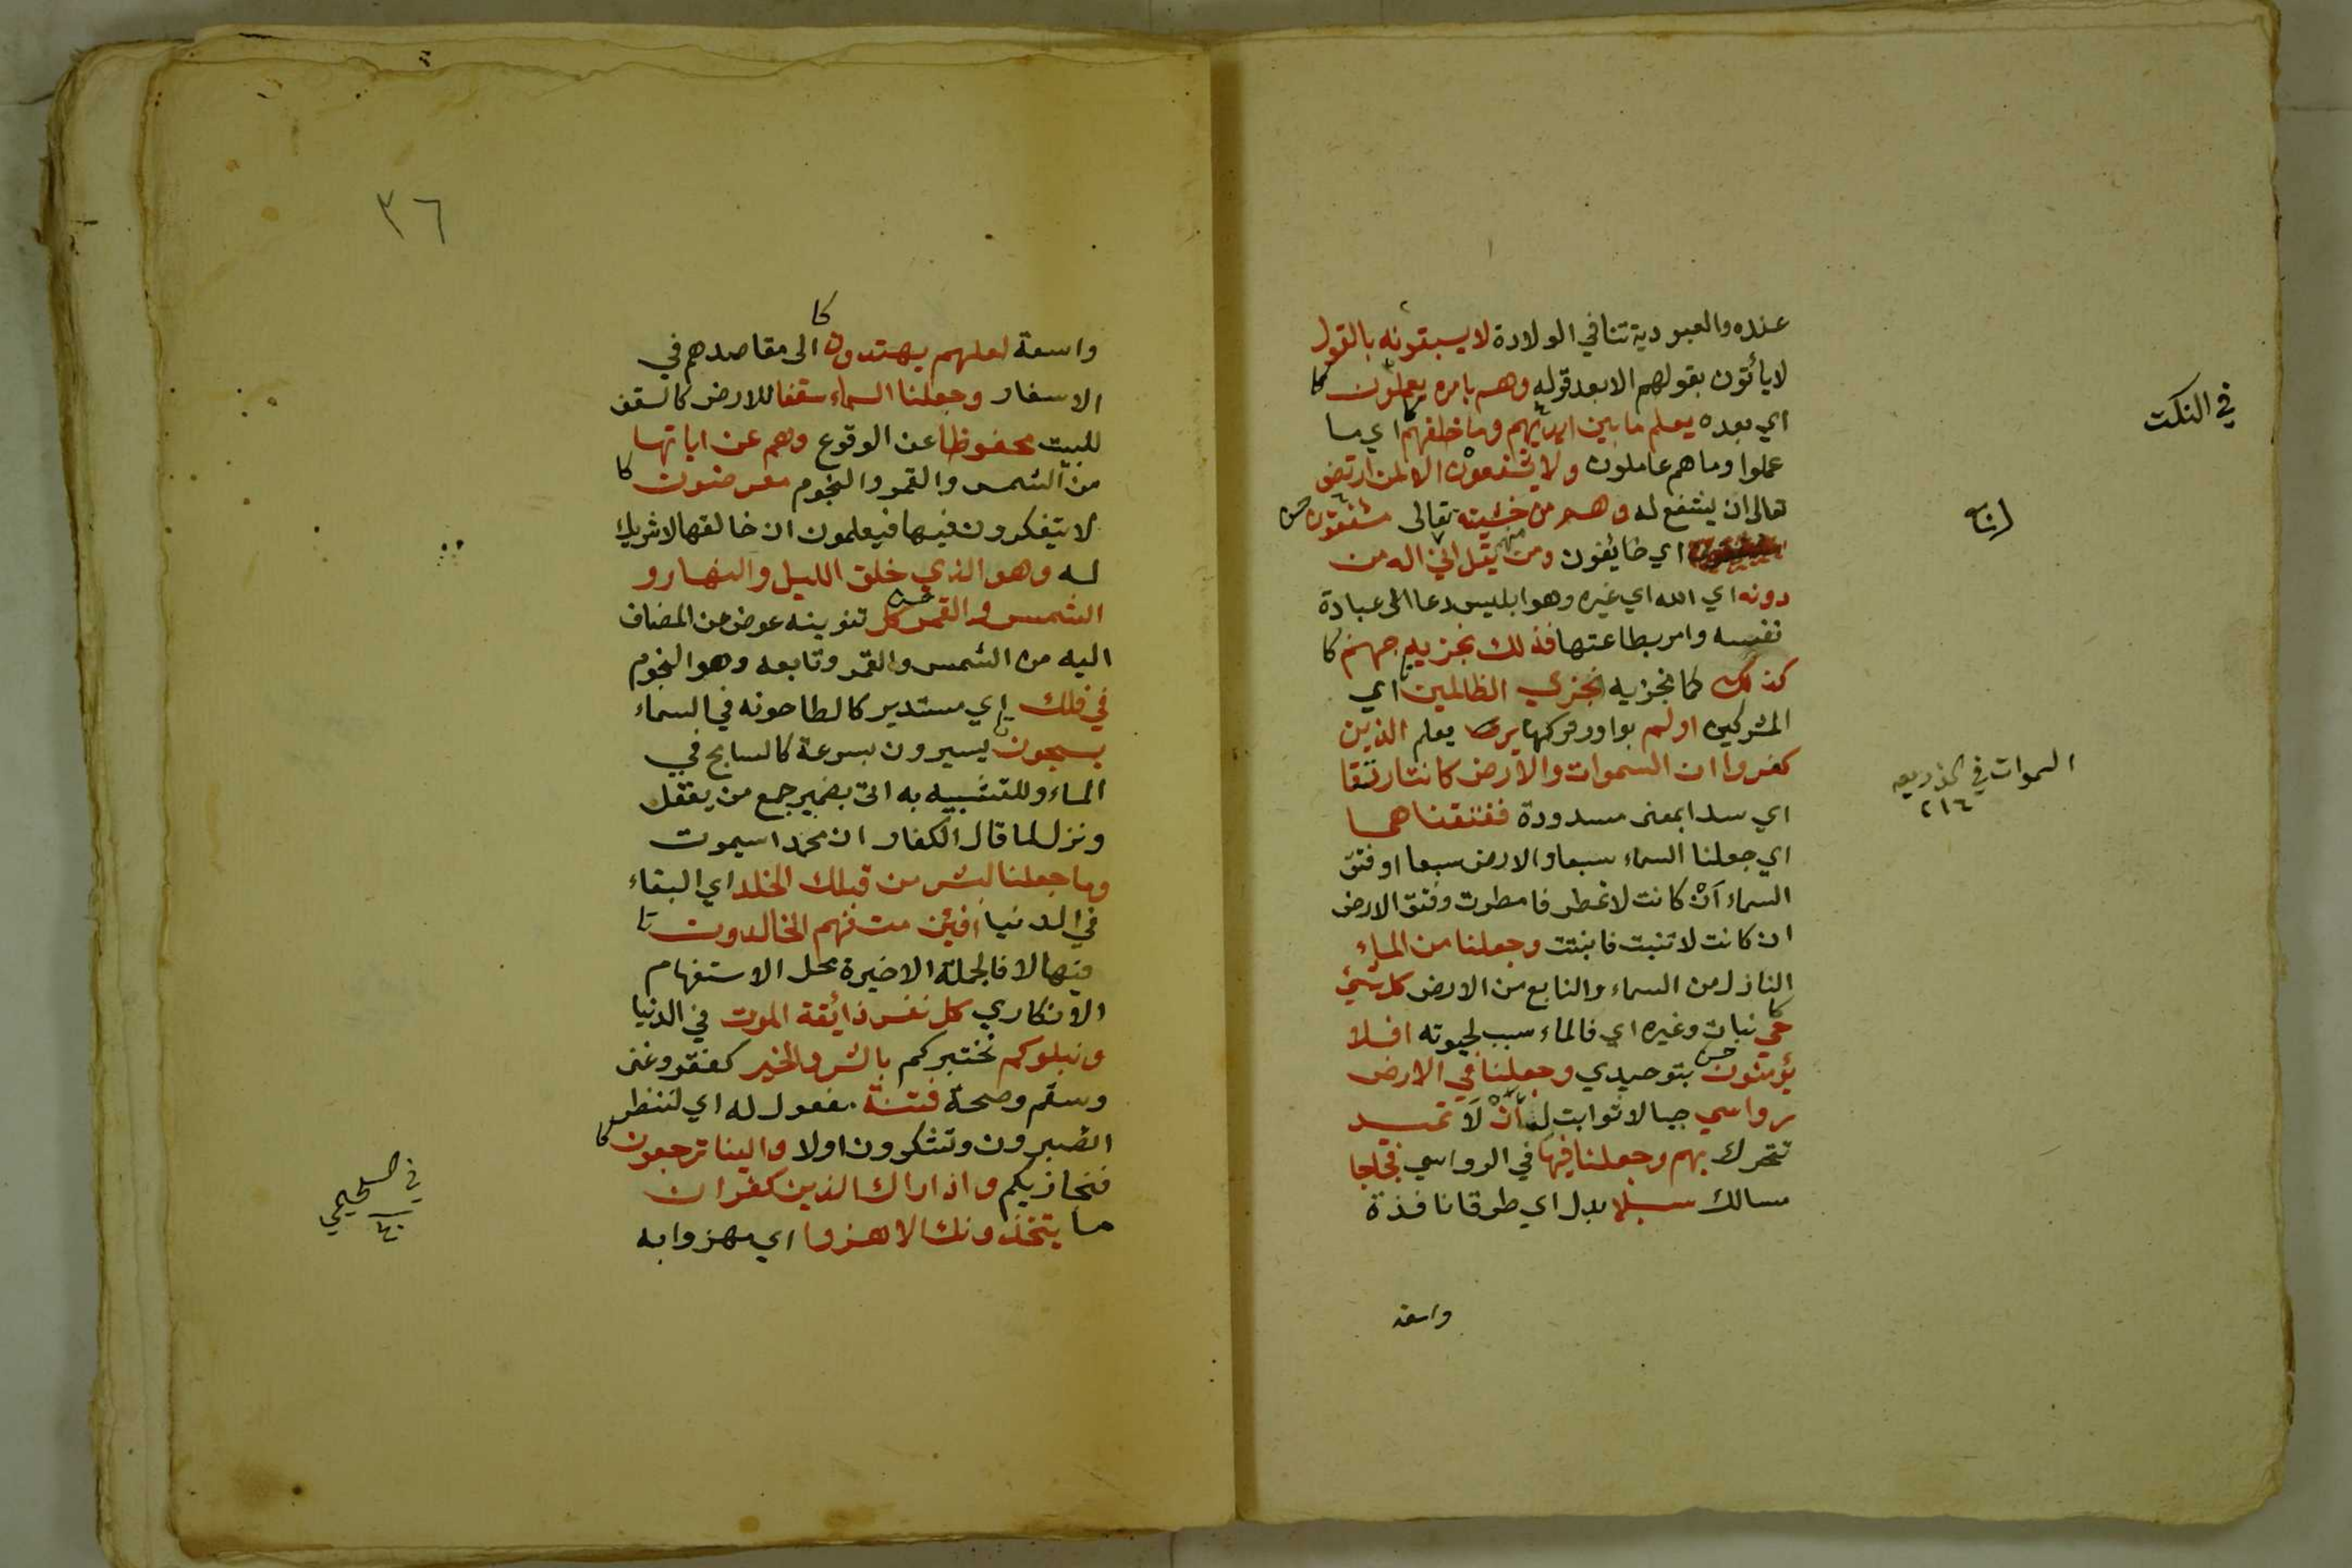 عنده والعبودية تنافي الولادة لا يسبقونه بالقول
لا يأتون بقولهم الا بعد قوله وهم بامره يعملون كا
اي بعده يعلم ما بين ايديهم وما خلفهم اي ما
عملوا وما هم عاملون ولا يشفعون الا لمن ارتضى
تعالى ان ينتفع له وهم من خشيته تعالى مشفقون
اي خايفون ومن يقل منهم اني اله من
دونه اي الله اي غيره وهو ابليس دعا الى عبادة
نفسه وامر بطاعتها فذلك نجزيه جهنم كا
كذلك كما نجزيه نجزي الظالمين اي
المشركين اولم بواو وتركها ير يعلم الذين
كفروا ان السموات والارض كانتا رتقا
اي سدا بمعنى مسدودة ففتقناهما
اي جعلنا السماء سبعا والارض سبعا او فتق
السماء أنْ كانت لا تمطر فامطرت وفتق الارض
ان كانت لا تنبت فانبتت وجعلنا من الماء
النازل من السماء والنابع من الارض كل شيئ
حي كا نبات وغيره اي فالماء سبب لحيوته افلا
يؤمنون بتوحيدي وجعلنا في الارض
رواسي جبالا ثوابت لـ أنْ لَا تميد
تتحرك بهم وجعلنا فيها في الرواسي فجاجا
مسالك سبلا بدل اي طرقا نافذة
واسعة
في النكت
السموات في
٢١٤
٣٦
واسعة لعلهم يهتدون كا الى مقاصدهم في
الاسفار وجعلنا السماء سقفا للارض كالسقف
للبيت محفوظا عن الوقوع وهم عن اياتها
من الشمس والقمر والنجوم معرضون كا
لا يتفكرون فيها فيعلمون ان خالقها لا شريك
له وهو الذي خلق الليل والنهار و
الشمس والقمر كل تنوينه عوض من المضاف
اليه من الشمس والقمر وتابعه وهو النجوم
في فلك اي مستدير كالطاحونه في السماء
يسبحون يسيرون بسرعة كالسابح في
الماء وللتشبيه به اتى بضمير جمع من يعقل
ونزل لما قال الكفار ان محمدا سيموت
وما جعلنا لبشر من قبلك الخلد اي البقاء
في الدنيا افئن مت فهم الخالدون
فيها لا فالجملة الاخيرة محل الاستفهام
الانكاري كل نفس ذائقة الموت في الدنيا
ونبلوكم نختبركم بالشر والخير كفقر وغنى
وسقم وصحة فتنة مفعول له اي لننظر
اتصبرون وتشكرون اولا والينا ترجعون كا
فنجازيكم واذا راك الذين كفروا ان
ما يتخذونك الا هزوا اي مهزوا به